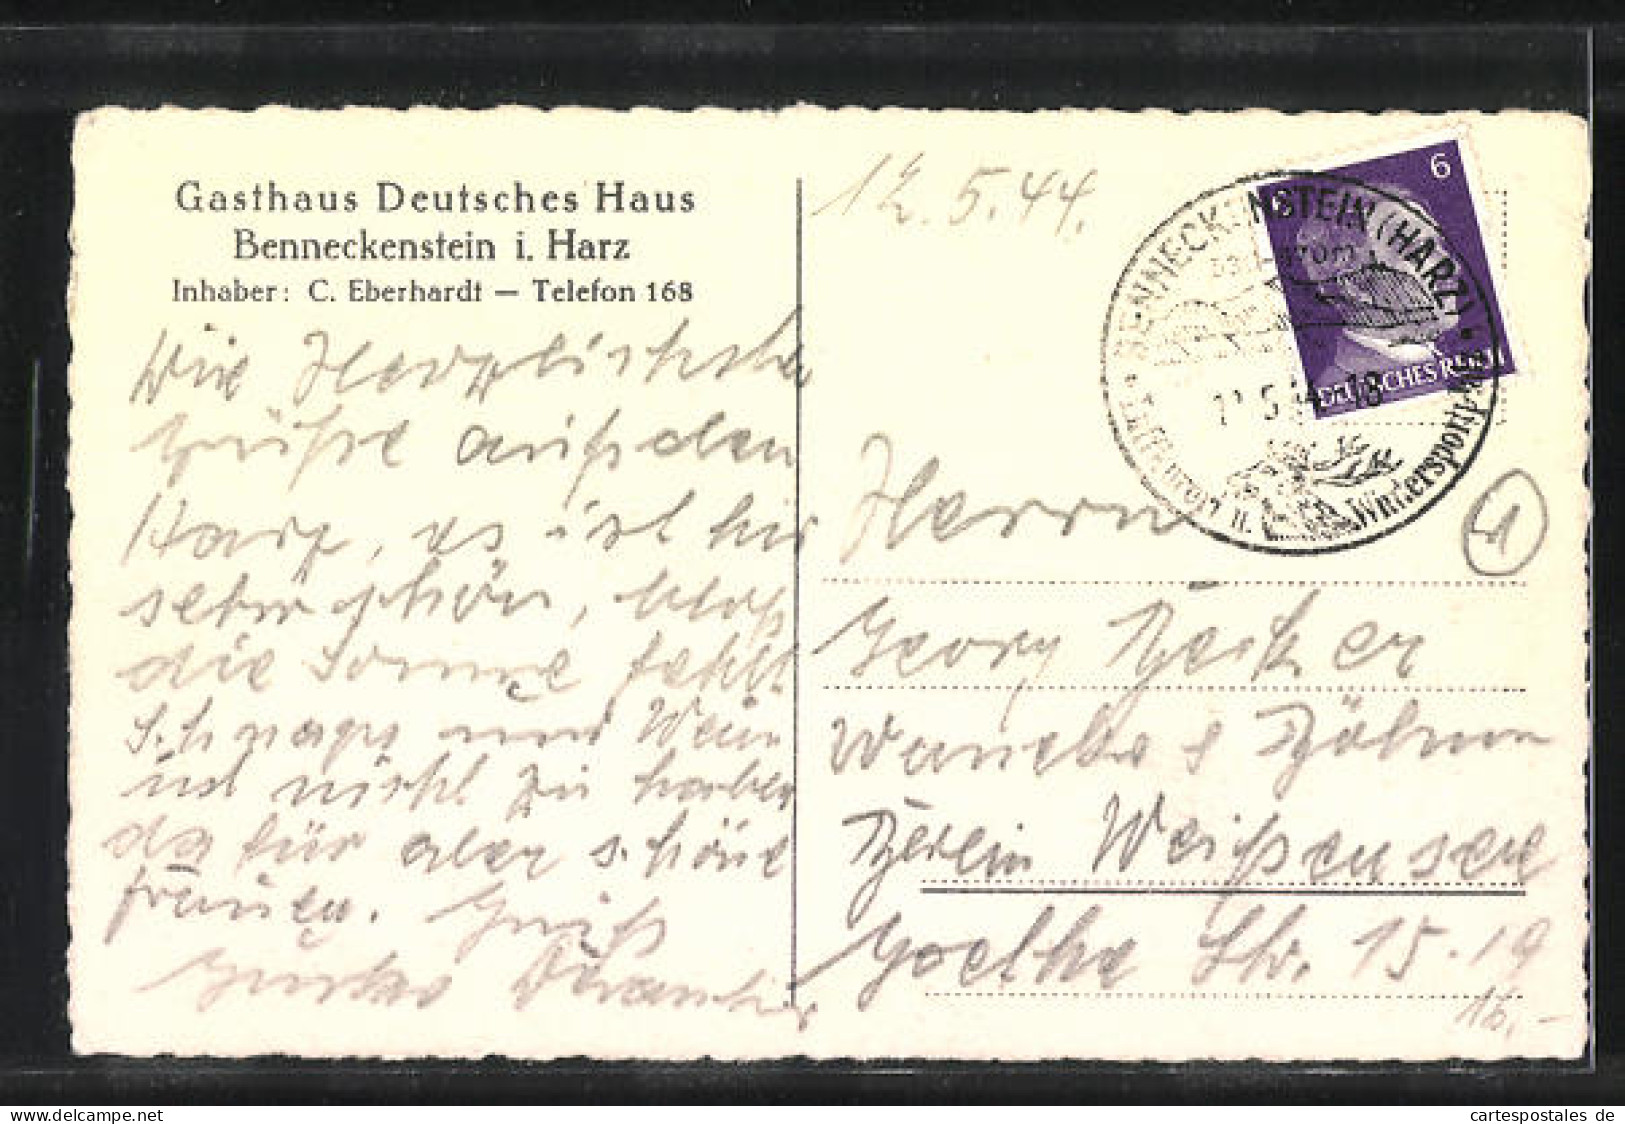 Gasthaus Deutsches Haus
Benneckenstein i. Harz
Inhaber: C. Eberhardt — Telefon 168
Herzlichste
Grüße aus den
Harz, es ist hir
sehr schön, bloß
die Sonne fehlt
Schnaps und Wein
ist nicht zu haben
dafür aber schöne
Frauen. Gruß
12.5.44.
6
DEUTSCHES REICH
BENNECKENSTEIN (HARZ)
u. Wintersportplatz
Herrn
Georg Becker
& Böhme
Berlin Weißensee
Goethe Str. 15-19
16.-
delcampe.net
cartespostales de